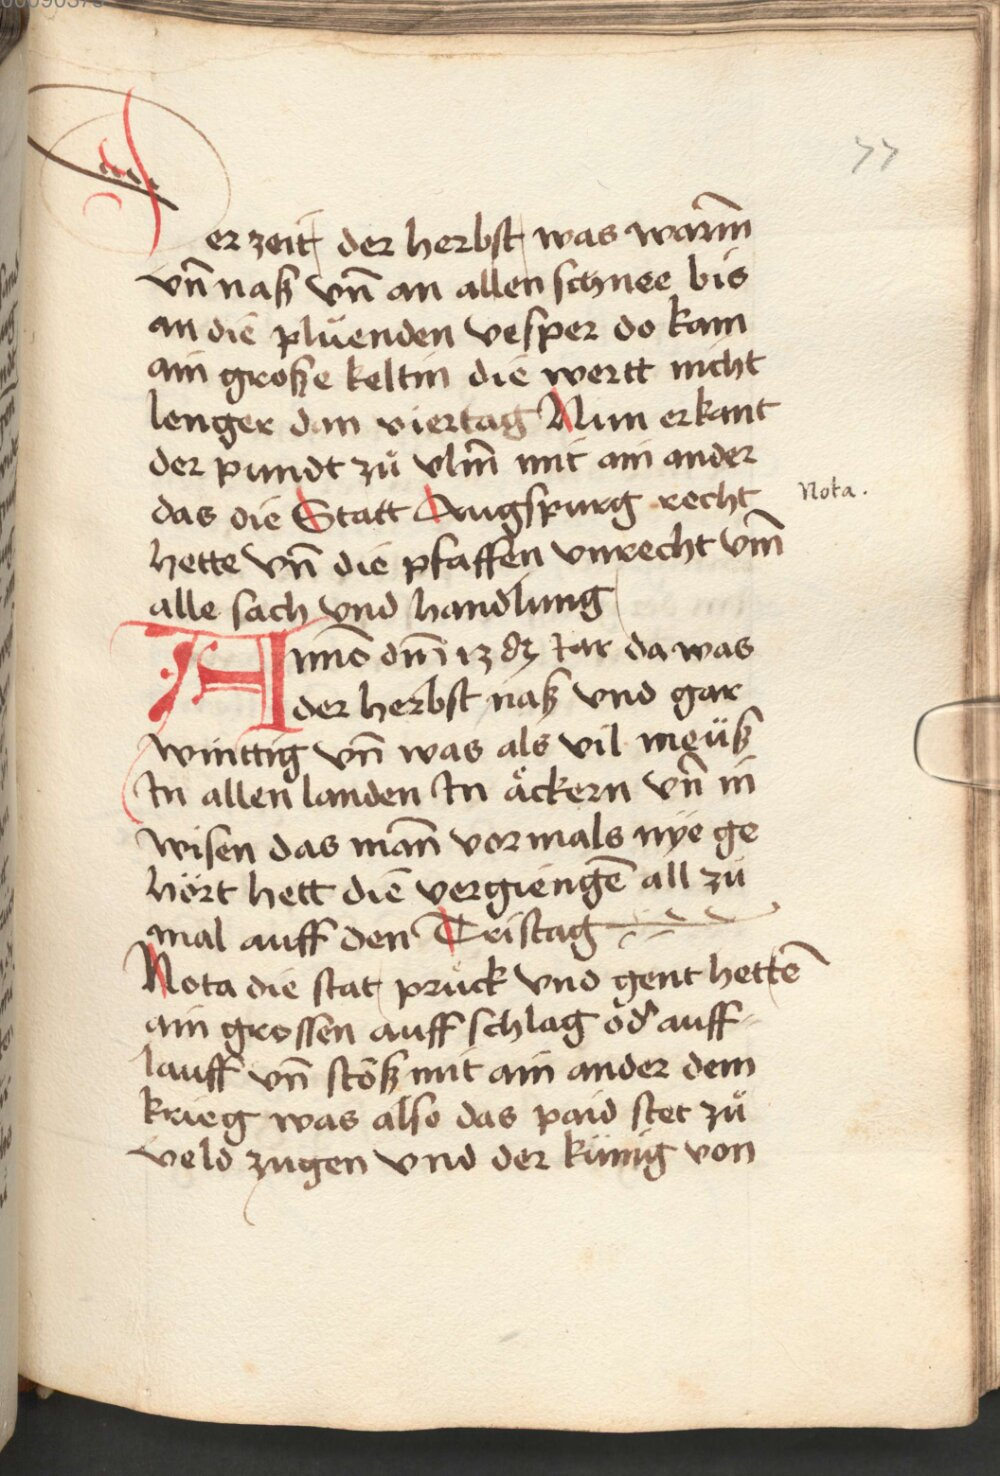 77
er zeit der herbst was warm̄
vn̄ naß vn̄ an allen schnee bis
an die plüenden vesper do kam
ain große keltin die wertt nicht
lenger dan viertag Nun erkant
der pundt zů vlm̄ mit ain ander
das die Statt Augspurg recht
Nota.
hette vn̄ die pfaffen vnrecht vm̄
alle sach vnd handlung
Anno dn̄i Jar da was
der herbst naß vnd gar
winttig vn̄ was als vil meüß
In allen landen In äckern vn̄ in
wisen das man̄ vormals nye ge
hört hett die vergiengē all zů
mal auff den Cristag
Nota die stat prück vnd gent hettē
ain grossen auff schlag od' auff
lauff vn̄ stöß mit ain ander dem
krieg was also das paid stet zů
veld zugen vnd der künig von